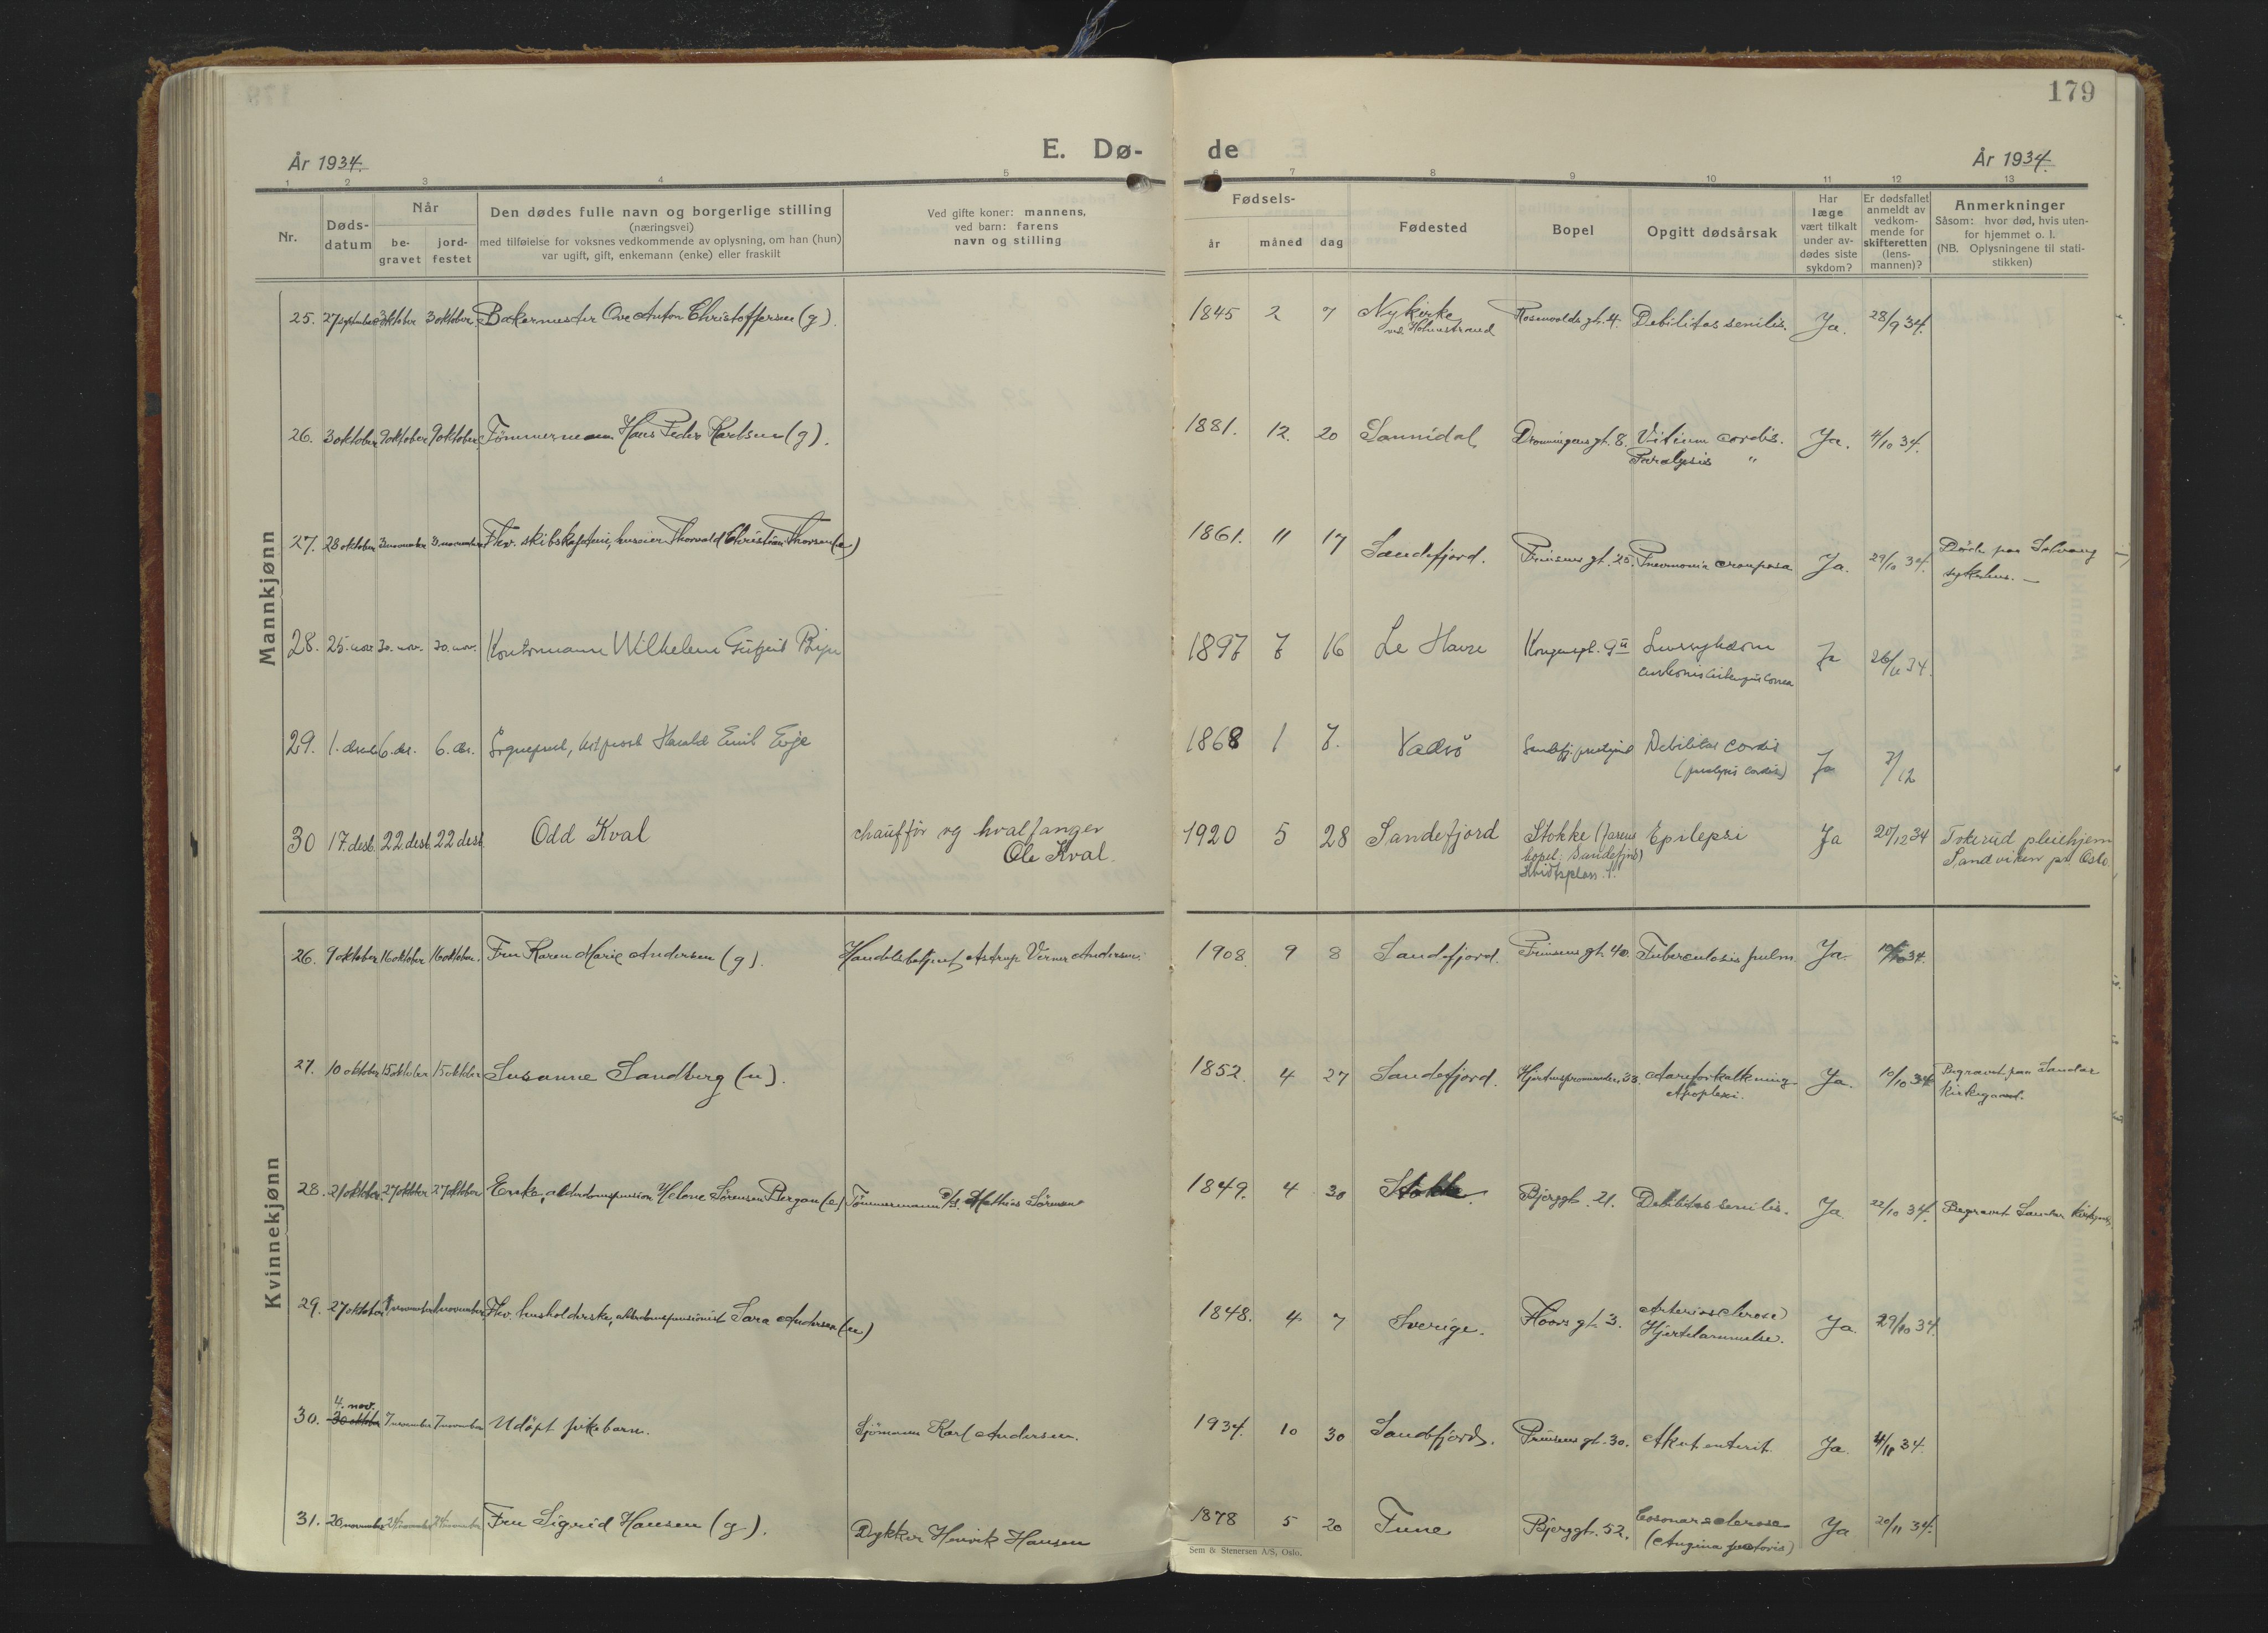 179
År 1934.
E. Dø-
de
År 1934.
1 2 3 4 5 6 7 8 9 10 11 12 13
Nr.
Døds-
datum
Når
be-
gravet
jord-
festet
Den dødes fulle navn og borgerlige stilling
(næringsvei)
med tilføielse for voksnes vedkommende av oplysning, om han (hun)
var ugift, gift, enkemann (enke) eller fraskilt
Ved gifte koner: mannens,
ved barn: farens
navn og stilling
Fødsels-
år måned dag
Fødested
Bopel
Opgitt dødsårsak
Har
læge
vært tilkalt
under av-
dødes siste
sykdom?
Er dødsfallet
anmeldt av
vedkom-
mende for
skifteretten
(lens-
mannen)?
Anmerkninger
Såsom: hvor død, hvis uten-
for hjemmet o. l.
(NB. Oplysningene til stati-
stikken)
Mannkjønn
25. 27 september 3 oktober 3 oktober Bakermester Ove Anton Christoffersen (g). 1845 2 7 Nykirke Rosenvolds gt. 4. Debilitas senilis. Ja. 28/9 34.
vd. Holmestrand
26. 3 oktober 9 oktober 9 oktober Tømmermann Hans Peder Karlsen (g). 1881. 12. 20 Sannidal Dronningens gt. 8. Vitium cordis. Ja. 4/10 34.
Paralysis "
27. 28 oktober 3 november 3. november Fhv. skibskaptein, huseier Thorvald Christian Thorsen (e) 1861. 11 17 Sandefjord. Prinsens gt. 25. Pneumonia crouposa Ja. 29/10 34. Døde paa Solvang
sykehus. —
28. 25. nov. 30. nov. 30. nov. Kontormann Wilhelm 1897 7 16 Le Havre 9 II Ja 26/11 34.
29. 1. 6. des. 6. des. Harald Emil Evje 1868 1 7. Vadsø Debilitas cordis Ja 3/12
(paralysis cordis)
30 17. des. 22 des. 22 des. Odd Kval chauffør og hvalfanger 1920 5 28 Sandefjord Stokke (farens Epilepsi Ja 20/12 34 Tokerud pleiehjem
Ole Kval. bopel: Sandefjord) Sandviken pr. Oslo.
plass 1.
Kvinnekjønn
26. 9 oktober 16 oktober 16 oktober. Fru Karen Marie Andersen (g). Handelsbetjent Astrup Verner Andersen. 1908. 9 8 Sandefjord. Prinsens gt. 40. Tuberculosis pulm. Ja. 10/10 34.
27. 10 oktober 15 oktober 15 oktober Susanne Sandberg (u). 1852. 4 27 Sandefjord. Hjertnespromenaden, 33. Aareforkalkning. Ja. 10/10 34 Begravet paa Sandar
Apoplexi. Kirkegaard.
28. 21 oktober. 27 oktober 27 oktober Enke, alderdomspension Helene Sørensen Bergan (e) Tømmermann Mathias Sørensen 1849. 4 30 Stokke. Bjerggt. 21. Debilitas senilis. Ja. 22/10 34. Begravet Sandar Kirkegaard.
29. 27 oktober 1 november 1 november Fhv. husholderske, alderdomspensionist Sara Andersen (u) 1848. 4 7 Sverige. Floors gt. 3. Arteriosclerose) Ja. 29/10 34.
Hjertelammelse.
4. nov.
30. 30 oktober 7 november 7 november Udøpt pikebarn. Sjømann Karl Andersen. 1934. 10 30 Sandefjord. Prinsens gt. 30. Akut enterit. Ja. 34.
31. 20 november 24 november 24 november Fru Sigrid Hansen (g). Dykker Henrik Hansen 1878 5 20 Tune Bjerggt. 52. Coronarsclerose Ja 20/11 34.
(Angina pectoris)
Sem & Stenersen A/S, Oslo.